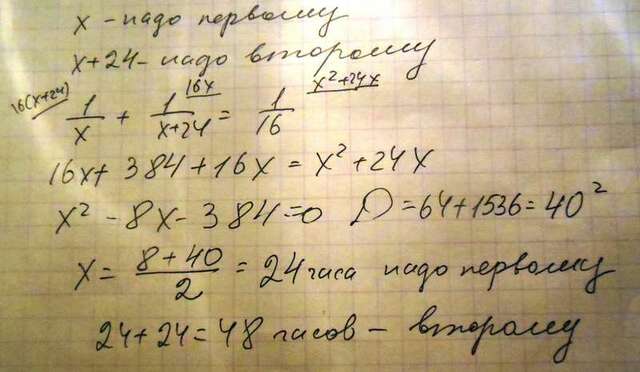 x - надо первому
x+24 - надо второму
16(x+24) 1/x + 1/(x+24) 16x = 1/16 x²+24x
16x+384+16x = x²+24x
x²-8x-384=0 D=64+1536=40²
x = (8+40)/2 = 24 часа надо первому
24+24=48 часов - второму